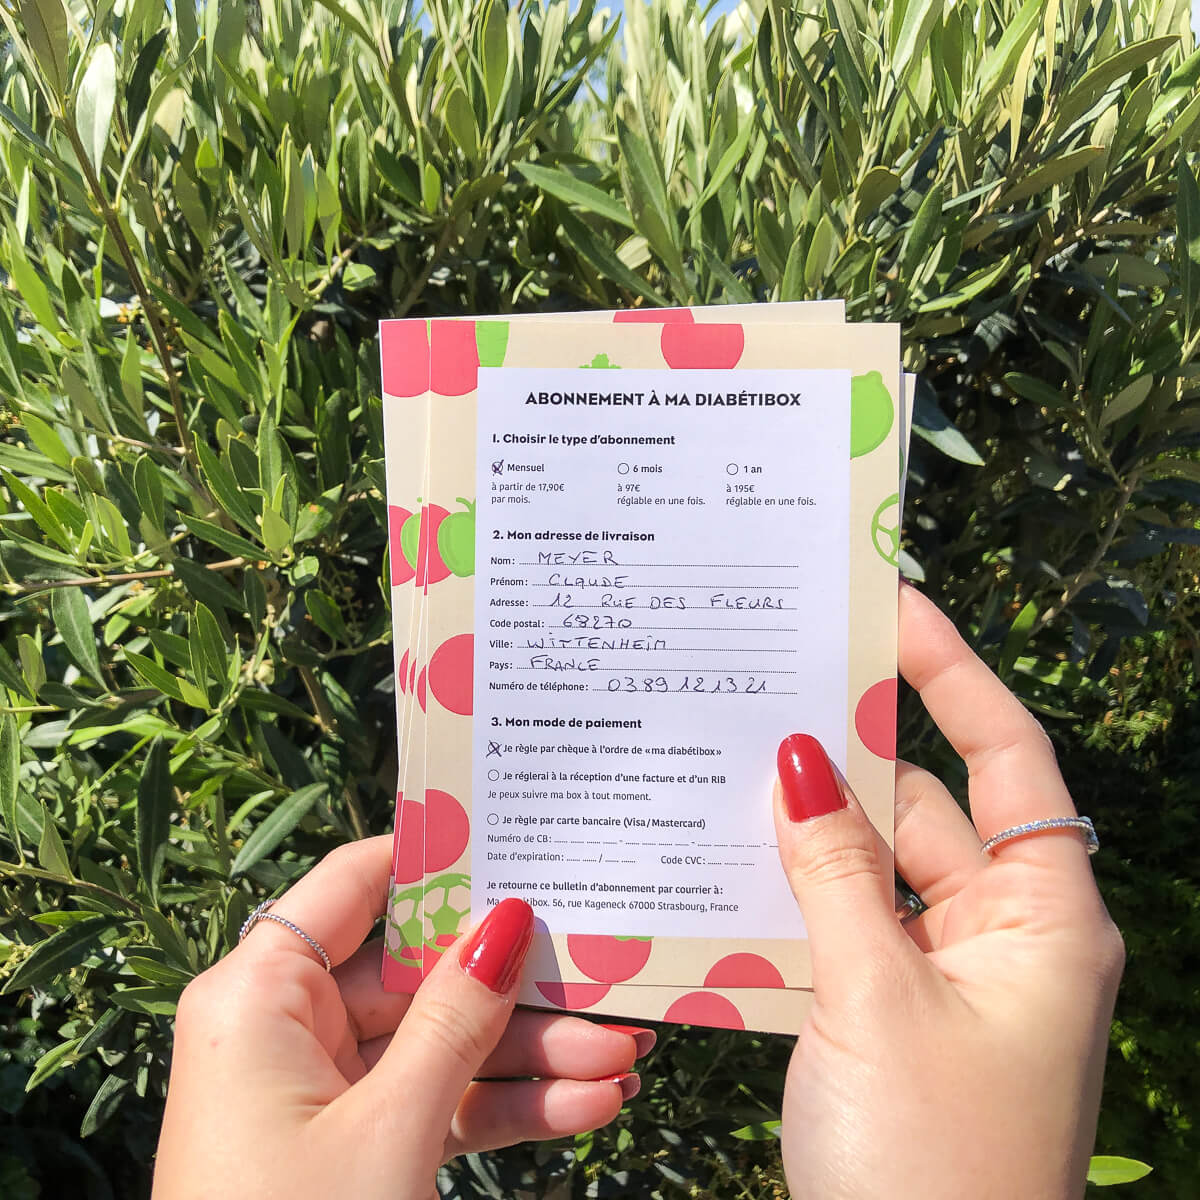 ABONNEMENT À MA DIABÉTIBOX
1. Choisir le type d'abonnement
Mensuel
à partir de 17,90€
par mois.
6 mois
à 97€
réglable en une fois.
1 an
à 195€
réglable en une fois.
2. Mon adresse de livraison
Nom: MEYER
Prénom: CLAUDE
Adresse: 12 RUE DES FLEURS
Code postal: 68270
Ville: WITTENHEIM
Pays: FRANCE
Numéro de téléphone: 03 89 12 13 21
3. Mon mode de paiement
Je règle par chèque à l'ordre de «ma diabétibox»
Je réglerai à la réception d'une facture et d'un RIB
Je peux suivre ma box à tout moment.
Je règle par carte bancaire (Visa/Mastercard)
Numéro de CB:
Date d'expiration: / Code CVC:
Je retourne ce bulletin d'abonnement par courrier à:
Ma 56, rue Kageneck 67000 Strasbourg, France